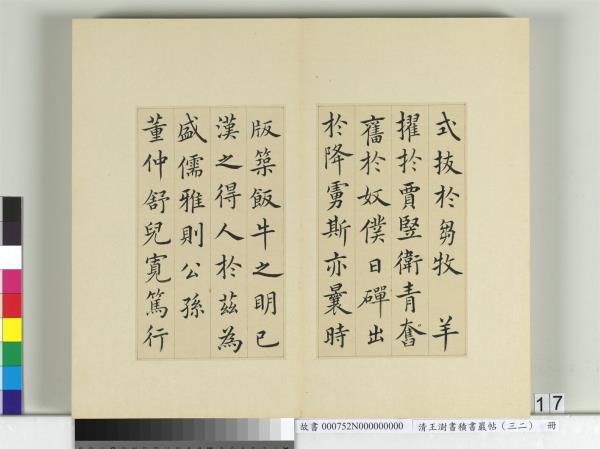 式拔於芻牧　羊
擢於賈豎衛青奮
舊於奴僕日磾出
於降虜斯亦曩時
版築飯牛之明已
漢之得人於茲為
盛儒雅則公孫
董仲舒兒寬篤行
17
故書 000752N000000000
清王澍書積書巖帖（三二） 冊